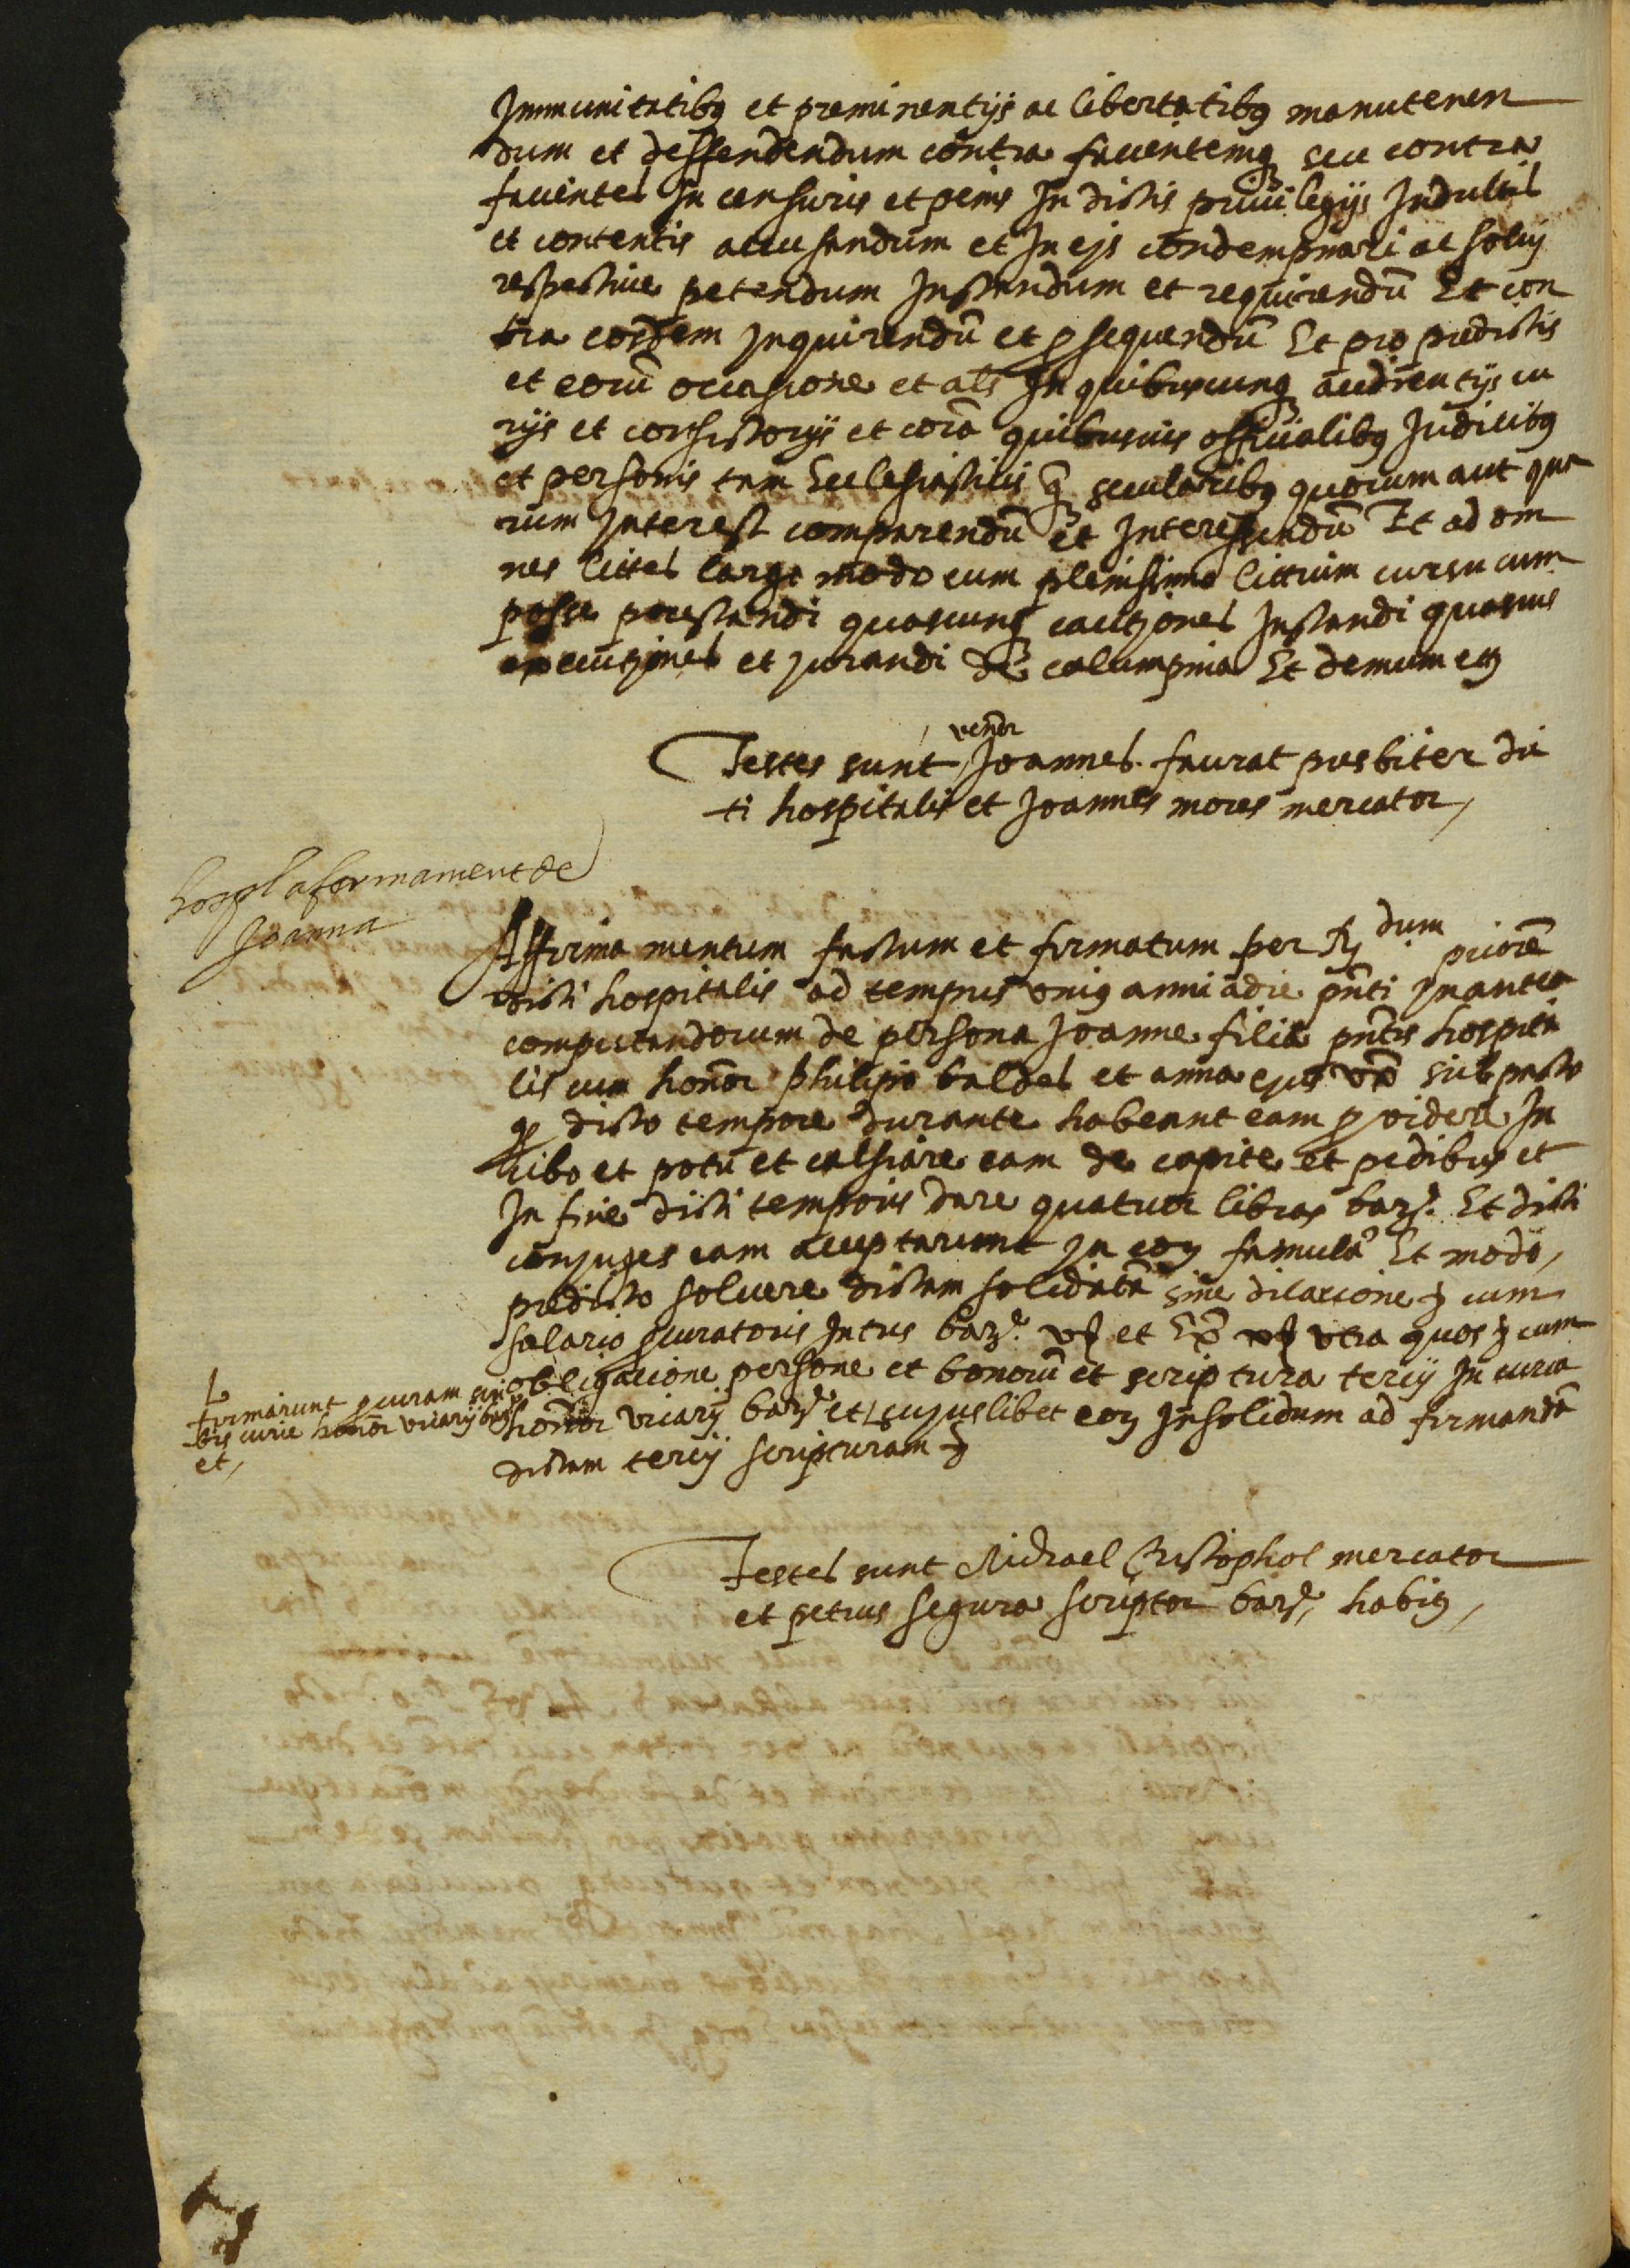 Immunitatibus et preminentijs ac libertatibus manutenen
dum et deffendendum contra favientemque seu contra
favientes In censuris et penis In dictis privilegijs Indultis
et contentis accusandum et In ejs condempnari ac solvj
respective petendum Instandum et requirendũ Et con
tra eosdem Inquirendũ et prosequendũ Et pro predictis
et eorũ occasione et als In quibuscunque audientijs cu
rijs et consistorijs et corã quibusvis officialibus Judicibus
et personis tam Ecclesiasticis quam secularibus quorum aut qua
rum Interest comparendũ et Interessendũ Et ad om
nes littes large modo cum plenissimo littium cursu cum
posse prestandi quascunque cautjones Instandi quasvis
execucjones et jurandi de calumpnia Et demum etc
Testes sunt venor Joannes faurat presbiter dic
ti hospitalis et Joannes mores mercator,
hospl afermament de
Joanna
Afferma mentum factum et firmatum per Rdum priorẽ
dicti hospitalis ad tempus unius anni a die pnti Inantea
computandorum de persona Joanne filie pntis hospita
lis cum honor philipo baldes et anna ejus uxe sub pacto
quod dicto tempore durante habeant eam providere In
cibo et potu et calsiare eam de capite et pedibus et
In fine dicti temporis dare quatuor libras barẽ. Et dicti
conjuges eam acceptarunt In eorum famulã Et modo,
predicto solvere dictam solidatã sine dilacione etc cum
salario procuratoris Intus barẽ. vs et Ex xs vtra quos etc cum
obligacione persone et bonorũ et scriptura tercij In curia
honor vicarij barẽ et cujuslibet eorum Insolidum ad firmandã
dictam tercij scripturam etc
firmarunt procuram scri
bis curie honor vicarij barẽ
et,
Testes sunt Michael Cristophol mercator
et petrus segura scriptor barẽ, habis,